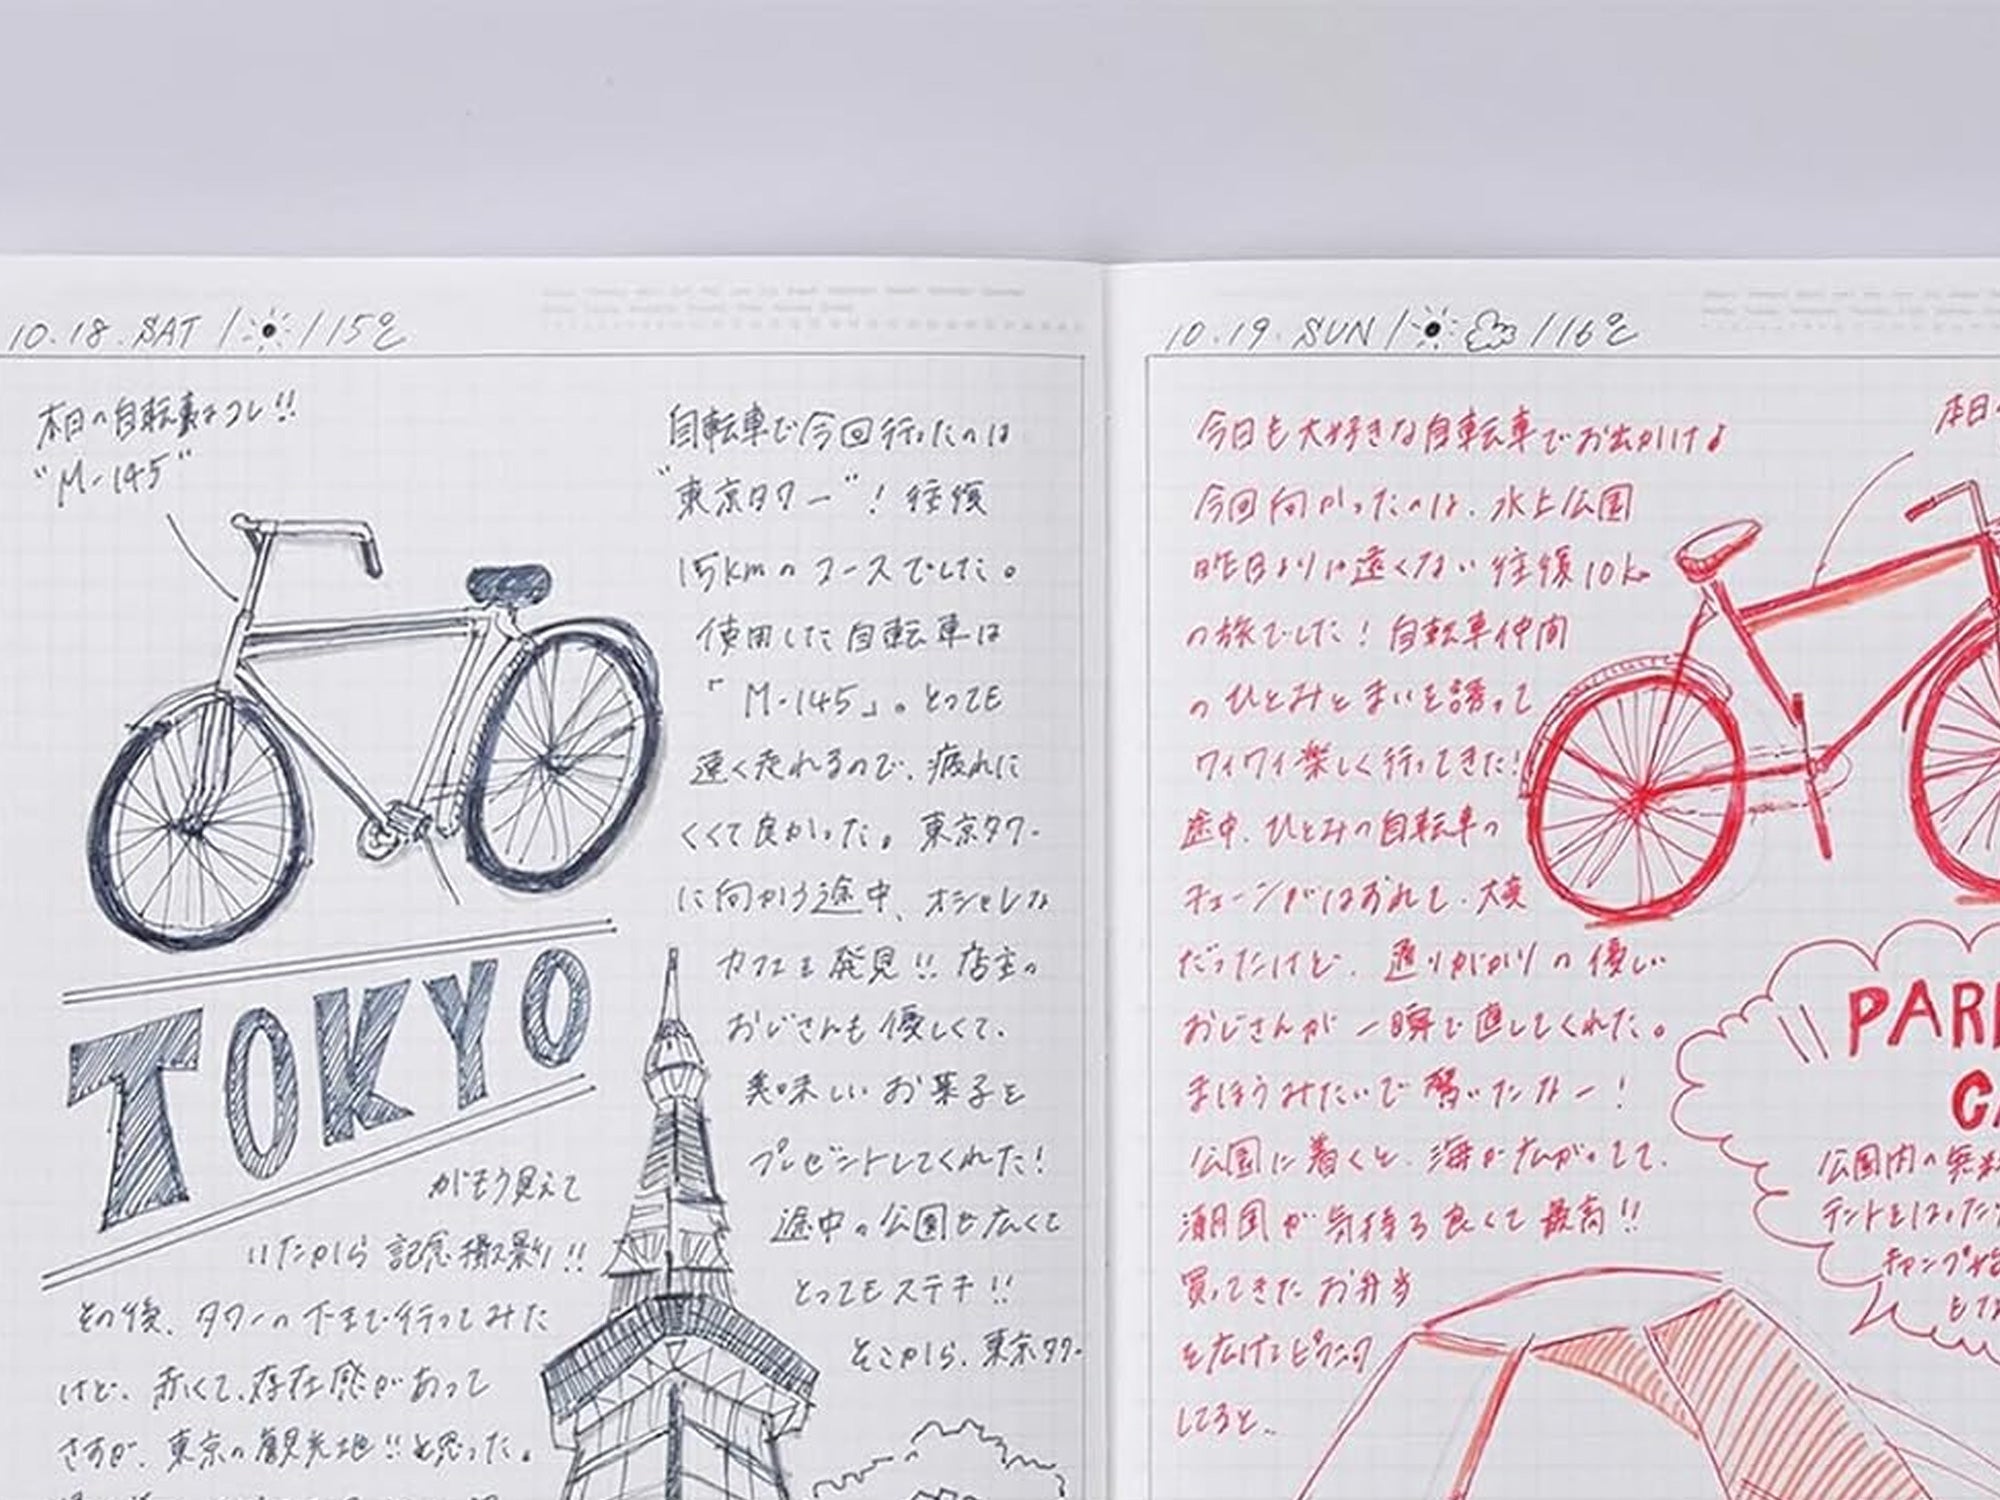 10.18.SAT / /15℃
本日の自転車はコレ!!
"M-145"
自転車で今回行ったのは
"東京タワー"! 往復
15kmのコースでした。
使用した自転車は
「M-145」。とっても
速く走れるので、疲れに
くくて良かった。東京タワー
に向かう途中、オシャレな
カフェを発見!! 店主の
おじさんも優しくて、
美味しいお菓子を
プレゼントしてくれた!
途中の公園も広くて
とってもステキ!!
そこから、東京タワー
TOKYO
がもう見えて
いたから記念撮影!!
その後、タワーの下まで行ってみた
けど、赤くて、存在感があって
さすが、東京の観光地!!と思った。
10.19.SUN / /16℃
今日も大好きな自転車でお出かけ♪
今回向かったのは、水上公園
昨日よりは遠くない往復10km
の旅でした! 自転車仲間
のひとみとまいを誘って
ワイワイ楽しく行ってきた!
途中、ひとみの自転車の
チェーンがはずれて、大変
だったけど、通りがかりの優しい
おじさんが一瞬で直してくれた。
まほうみたいで驚いたなー!
公園に着くと、海が広がってて、
潮風が気持ち良くて最高!!
買ってきたお弁当
を広げてピクニック
してると、
本日
PAR
CA
公園内の無料
テントをはった
キャンプ